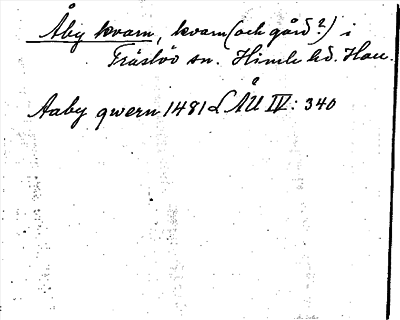 Åby kvarn, kvarn (och gård?) i
Träslöv sn. Himle hd. Hall.
Aaby qwern 1481 LÅÄ IV: 340